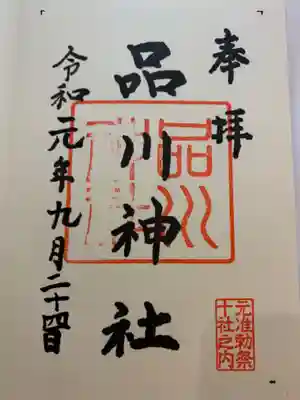 奉拝
品川神社
令和元年九月二十四日
元准勅祭
十社之内